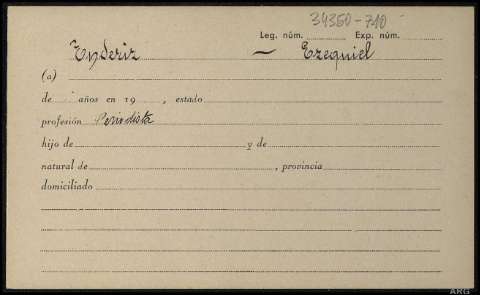 34350-710
Leg. núm. Exp. núm.
Endériz — Ezequiel
(a)
de años en 19 , estado
profesión Periodista
hijo de y de
natural de , provincia
domiciliado
ARG